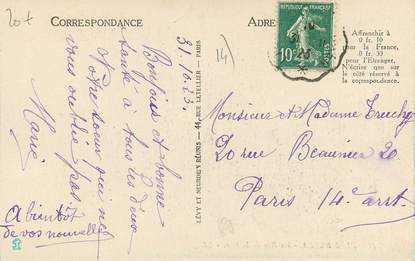 20+
CORRESPONDANCE
31.10.23.
Bonjour et bonne
santé à tous les deux
Votre soeur qui ne
vous oublie pas.
Marie
A bientôt
de vos nouvelles
LÉVY ET NEURDEIN RÉUNIS — 44, RUE LETELLIER — PARIS
14)
RÉPUBLIQUE FRANÇAISE
10c
Affranchir à
0 fr. 10
pour la France,
0 fr. 30
pour l'Etranger.
N'écrire que sur
le côté réservé à
la correspondance.
Monsieur et Madame
20 rue Beaunier 20
Paris 14e arrt